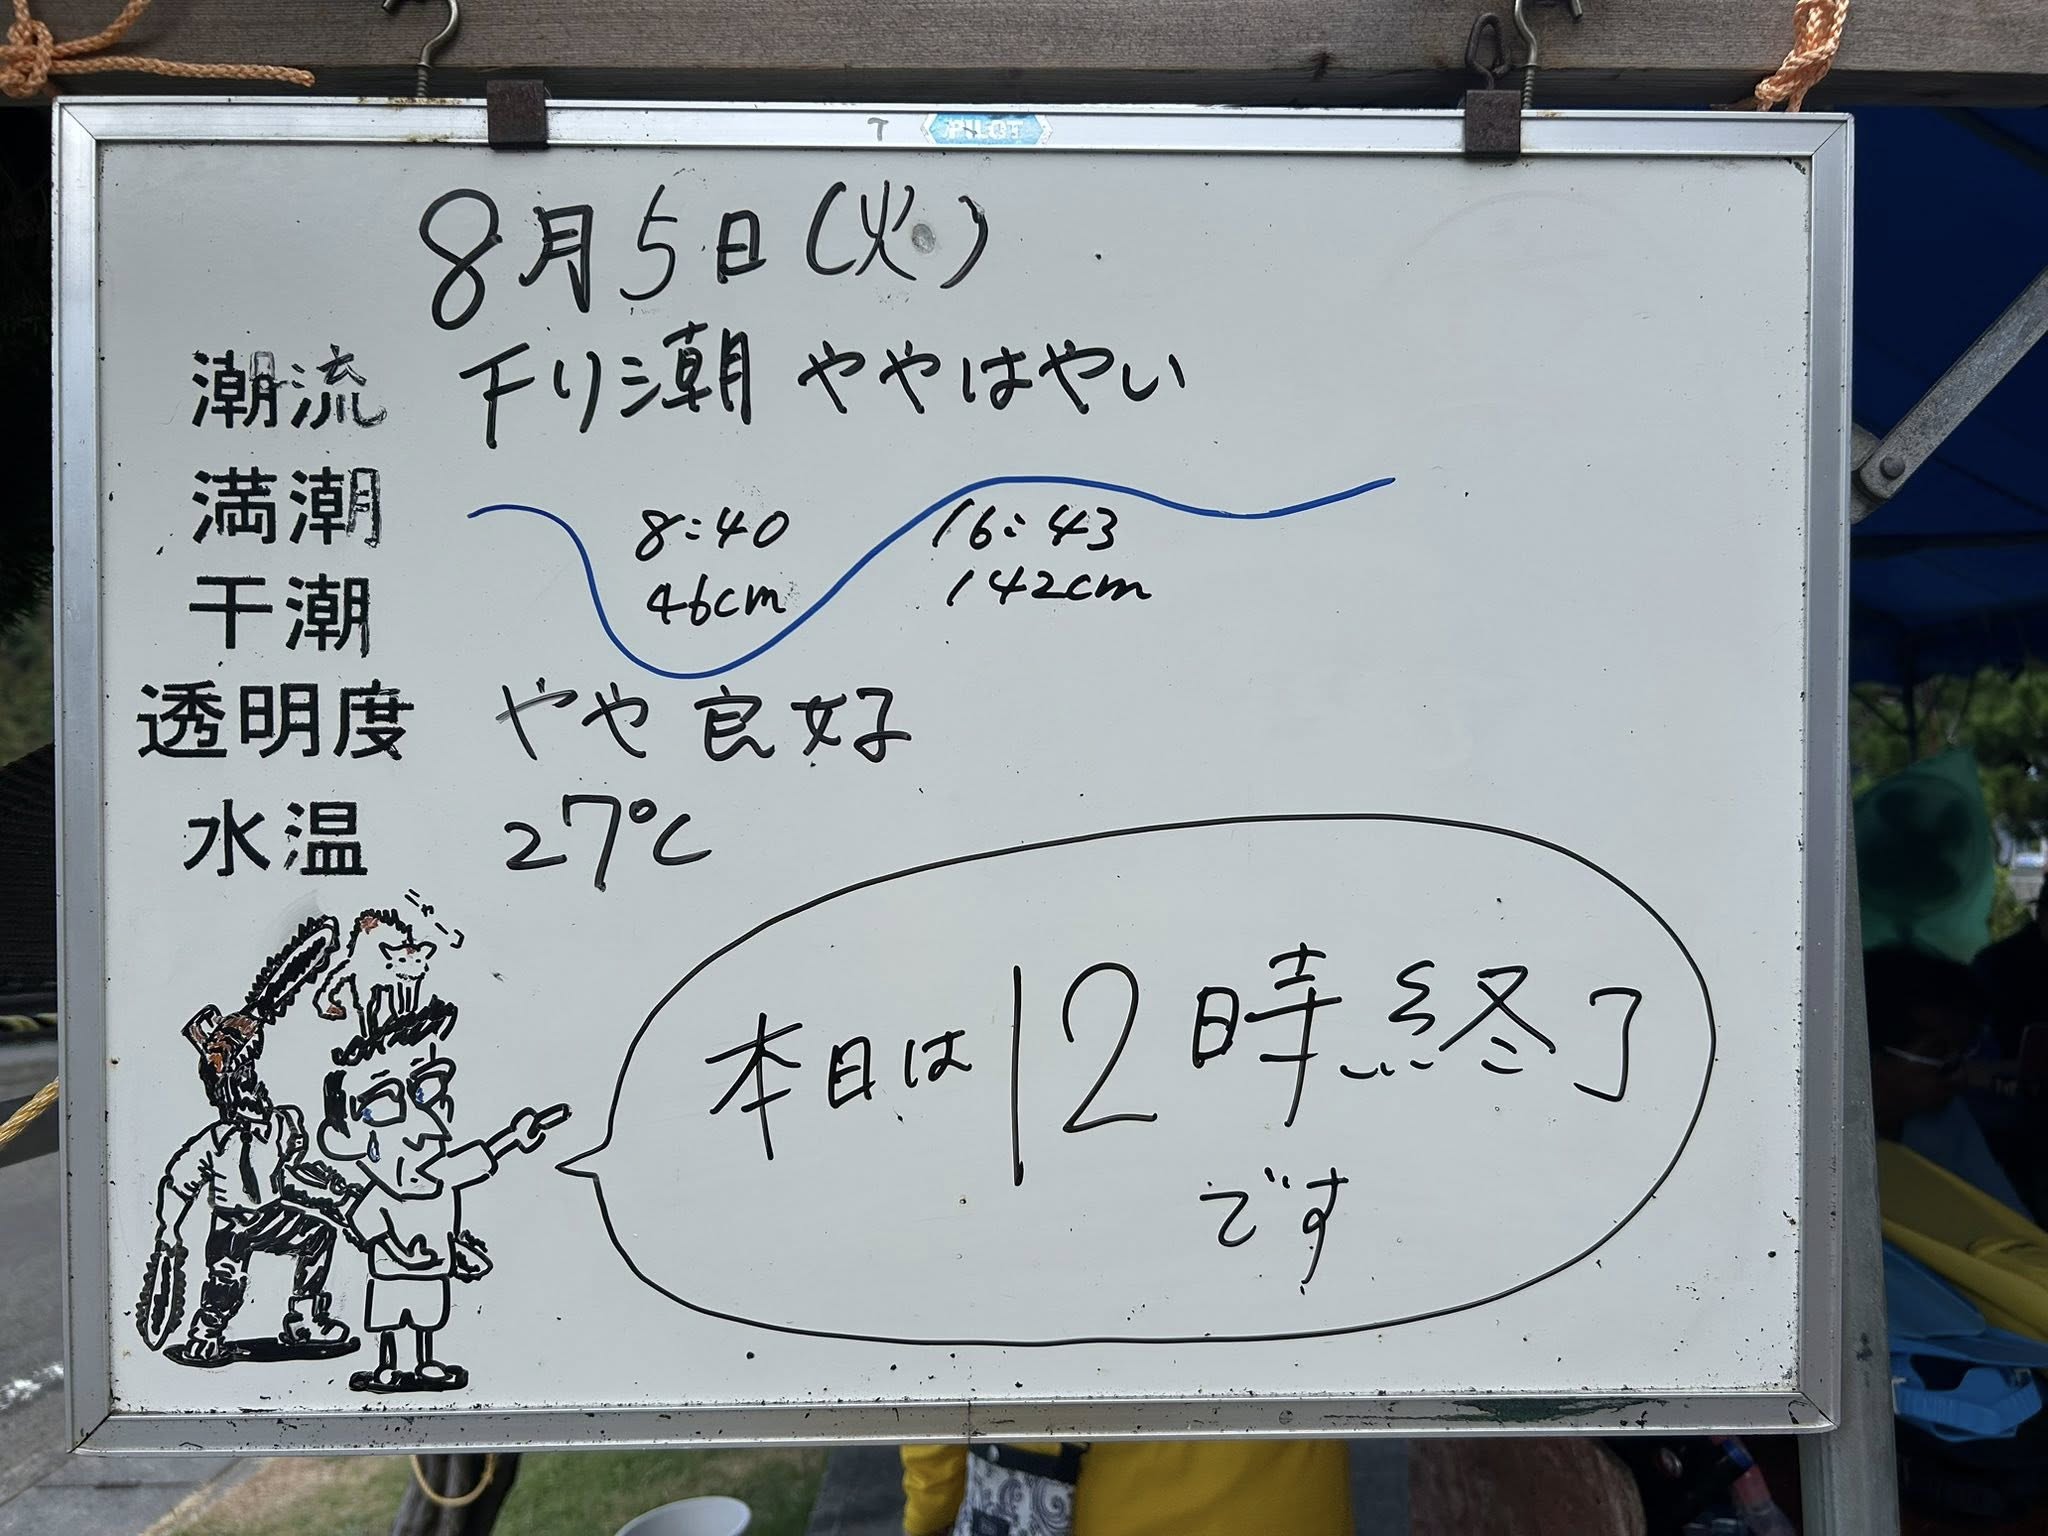 PILOT
8月5日(火)
潮流 干り潮 ややはやい
満潮
8:40 16:43
46cm 142cm
干潮
透明度 やや良好
水温 27℃
ニャーン
本日は12時終了
です